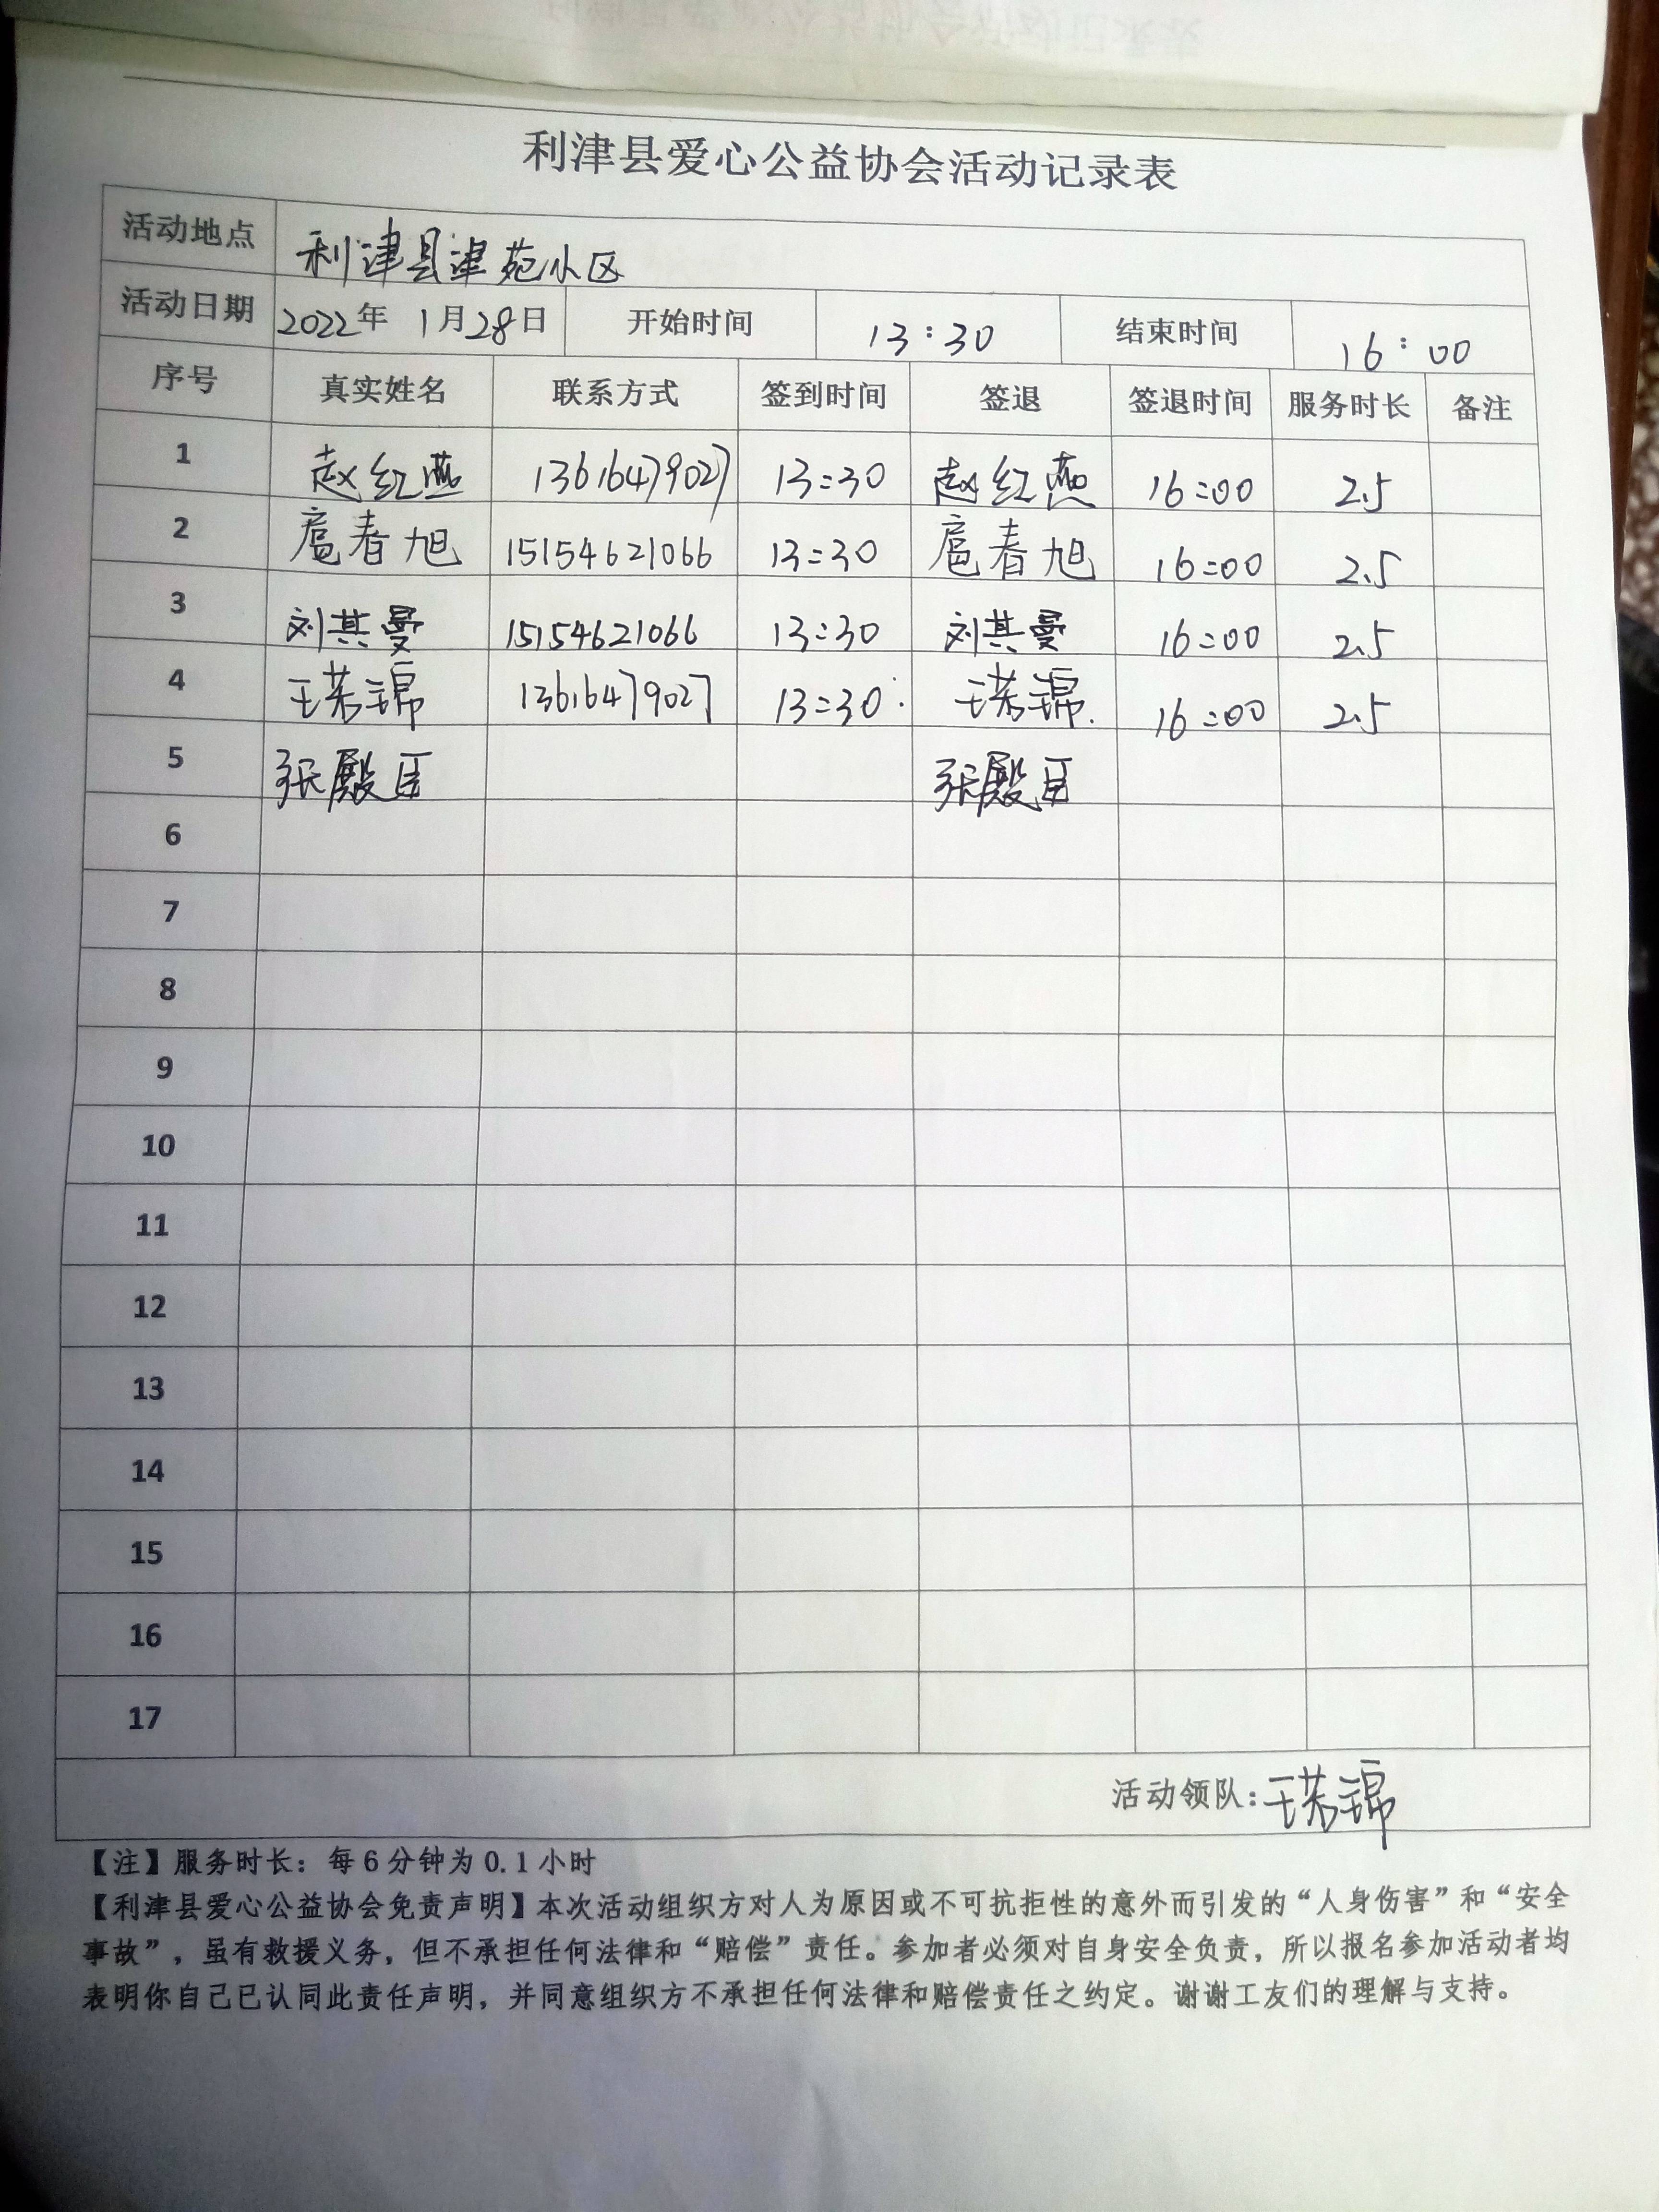 利津县爱心公益协会活动记录表
活动地点 利津县津苑小区
活动日期 2022年 1月28日 开始时间 13:30 结束时间 16:00
序号 真实姓名 联系方式 签到时间 签退 签退时间 服务时长 备注
1 赵红燕 13616479027 13:30 赵红燕 16:00 2.5
2 扈春旭 15154621066 13:30 扈春旭 16:00 2.5
3 刘其曼 15154621066 13:30 刘其曼 16:00 2.5
4 王若锦 13616479027 13:30 王若锦 16:00 2.5
5 张殿臣 张殿臣
6
7
8
9
10
11
12
13
14
15
16
17
活动领队:王若锦
【注】服务时长：每6分钟为0.1小时
【利津县爱心公益协会免责声明】本次活动组织方对人为原因或不可抗拒性的意外而引发的“人身伤害”和“安全
事故”，虽有救援义务，但不承担任何法律和“赔偿”责任。参加者必须对自身安全负责，所以报名参加活动者均
表明你自己已认同此责任声明，并同意组织方不承担任何法律和赔偿责任之约定。谢谢工友们的理解与支持。